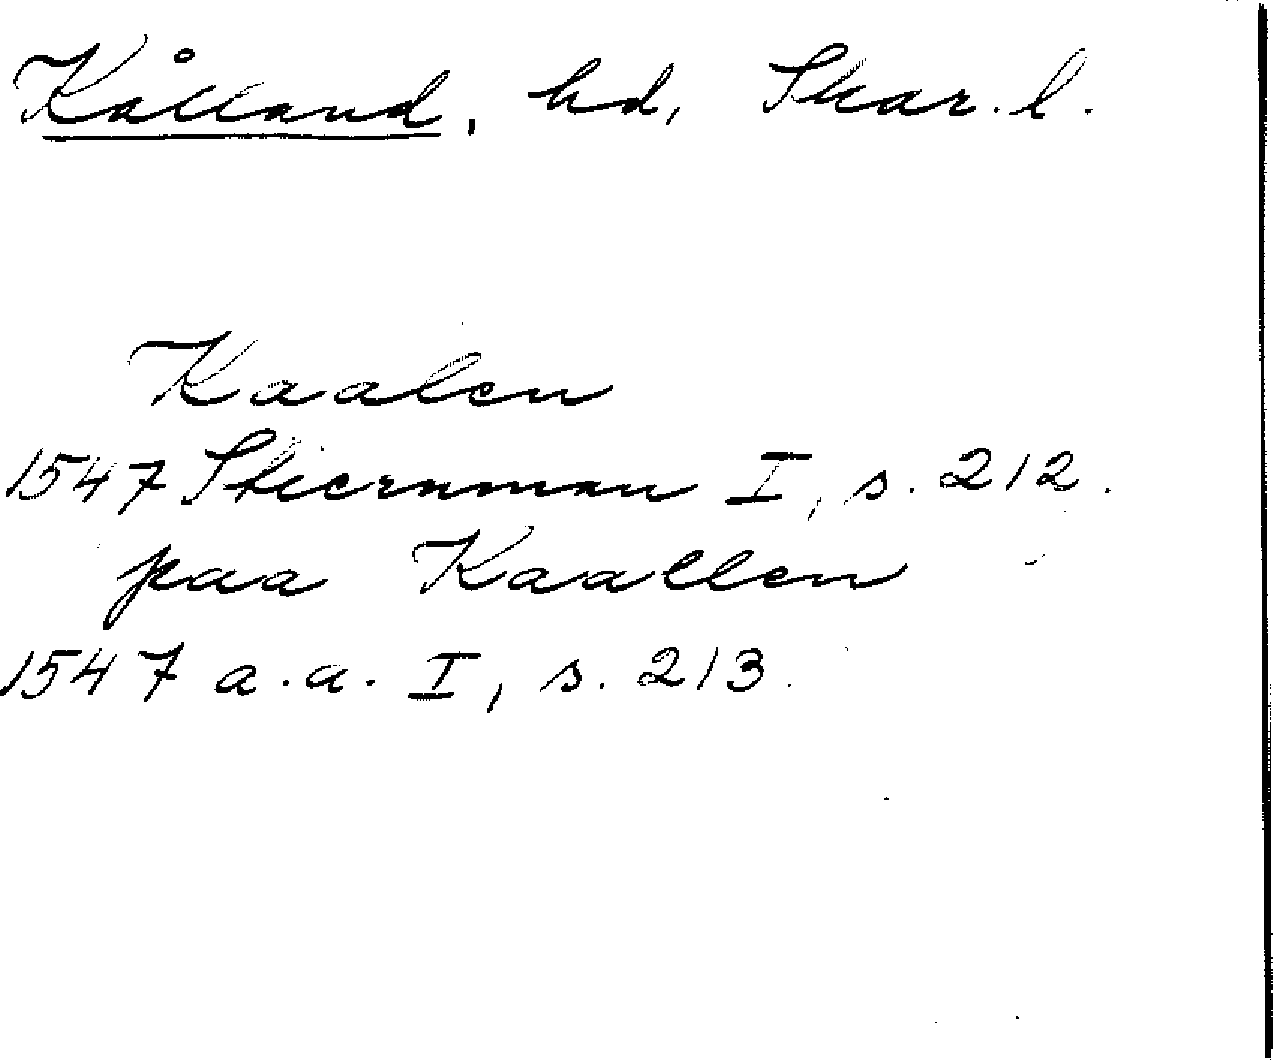 Kålland, hd, Skar. l.
Kaalen
1547 Stiernman I, s. 212.
paa Kaallen
1547 a.a. I, s. 213.